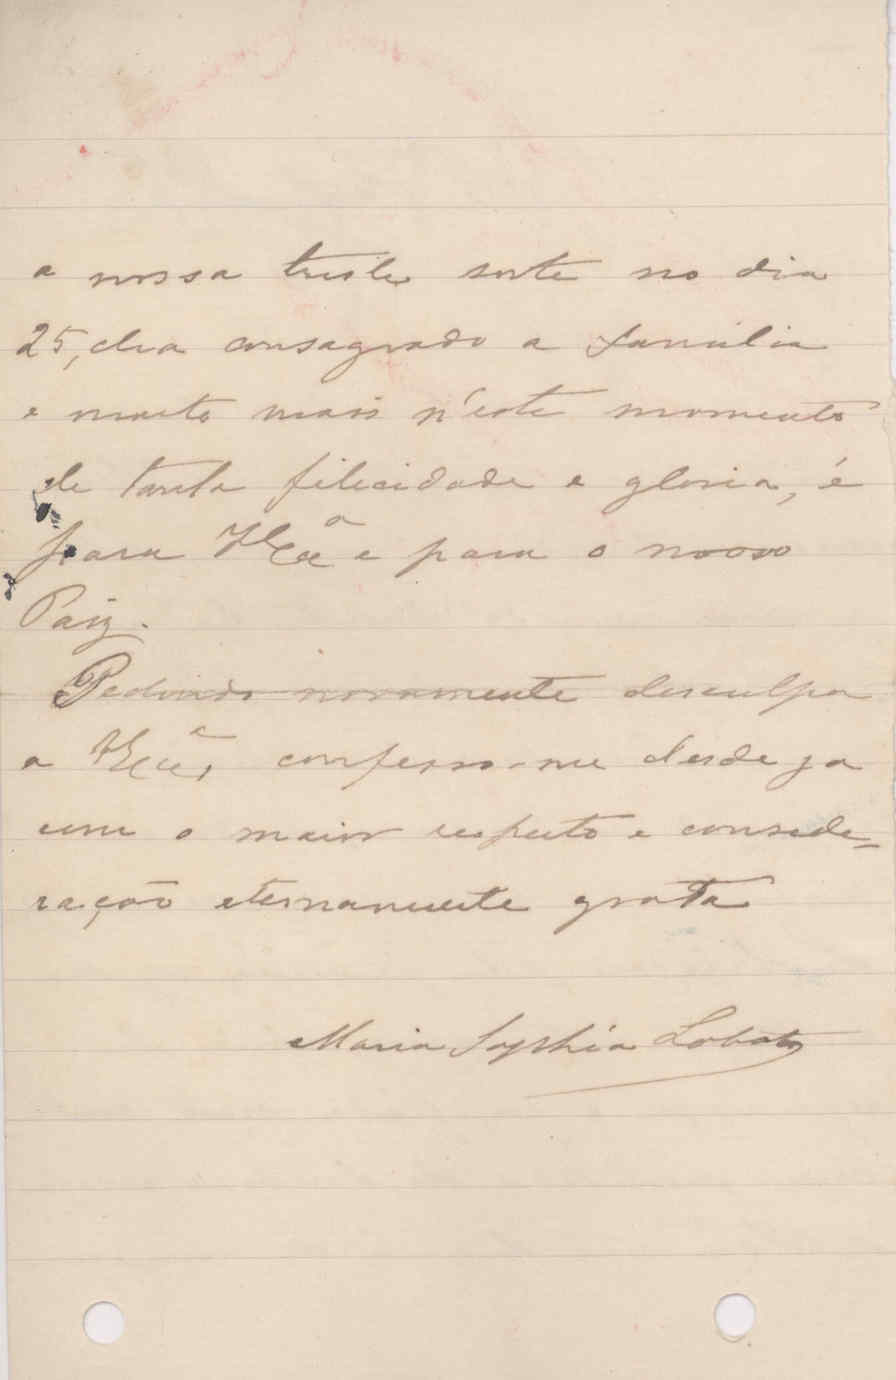 a nossa triste sorte no dia
25, dia consagrado a familia
e muito mais n'este momento
de tanta felicidade e gloria, é
para V Exª e para o nosso
Paiz.
Pedindo novamente desculpa
a V Exª, confesso-me desde ja
com o maior respeito e conside=
ração eternamente grata
Maria Sophia Lobato